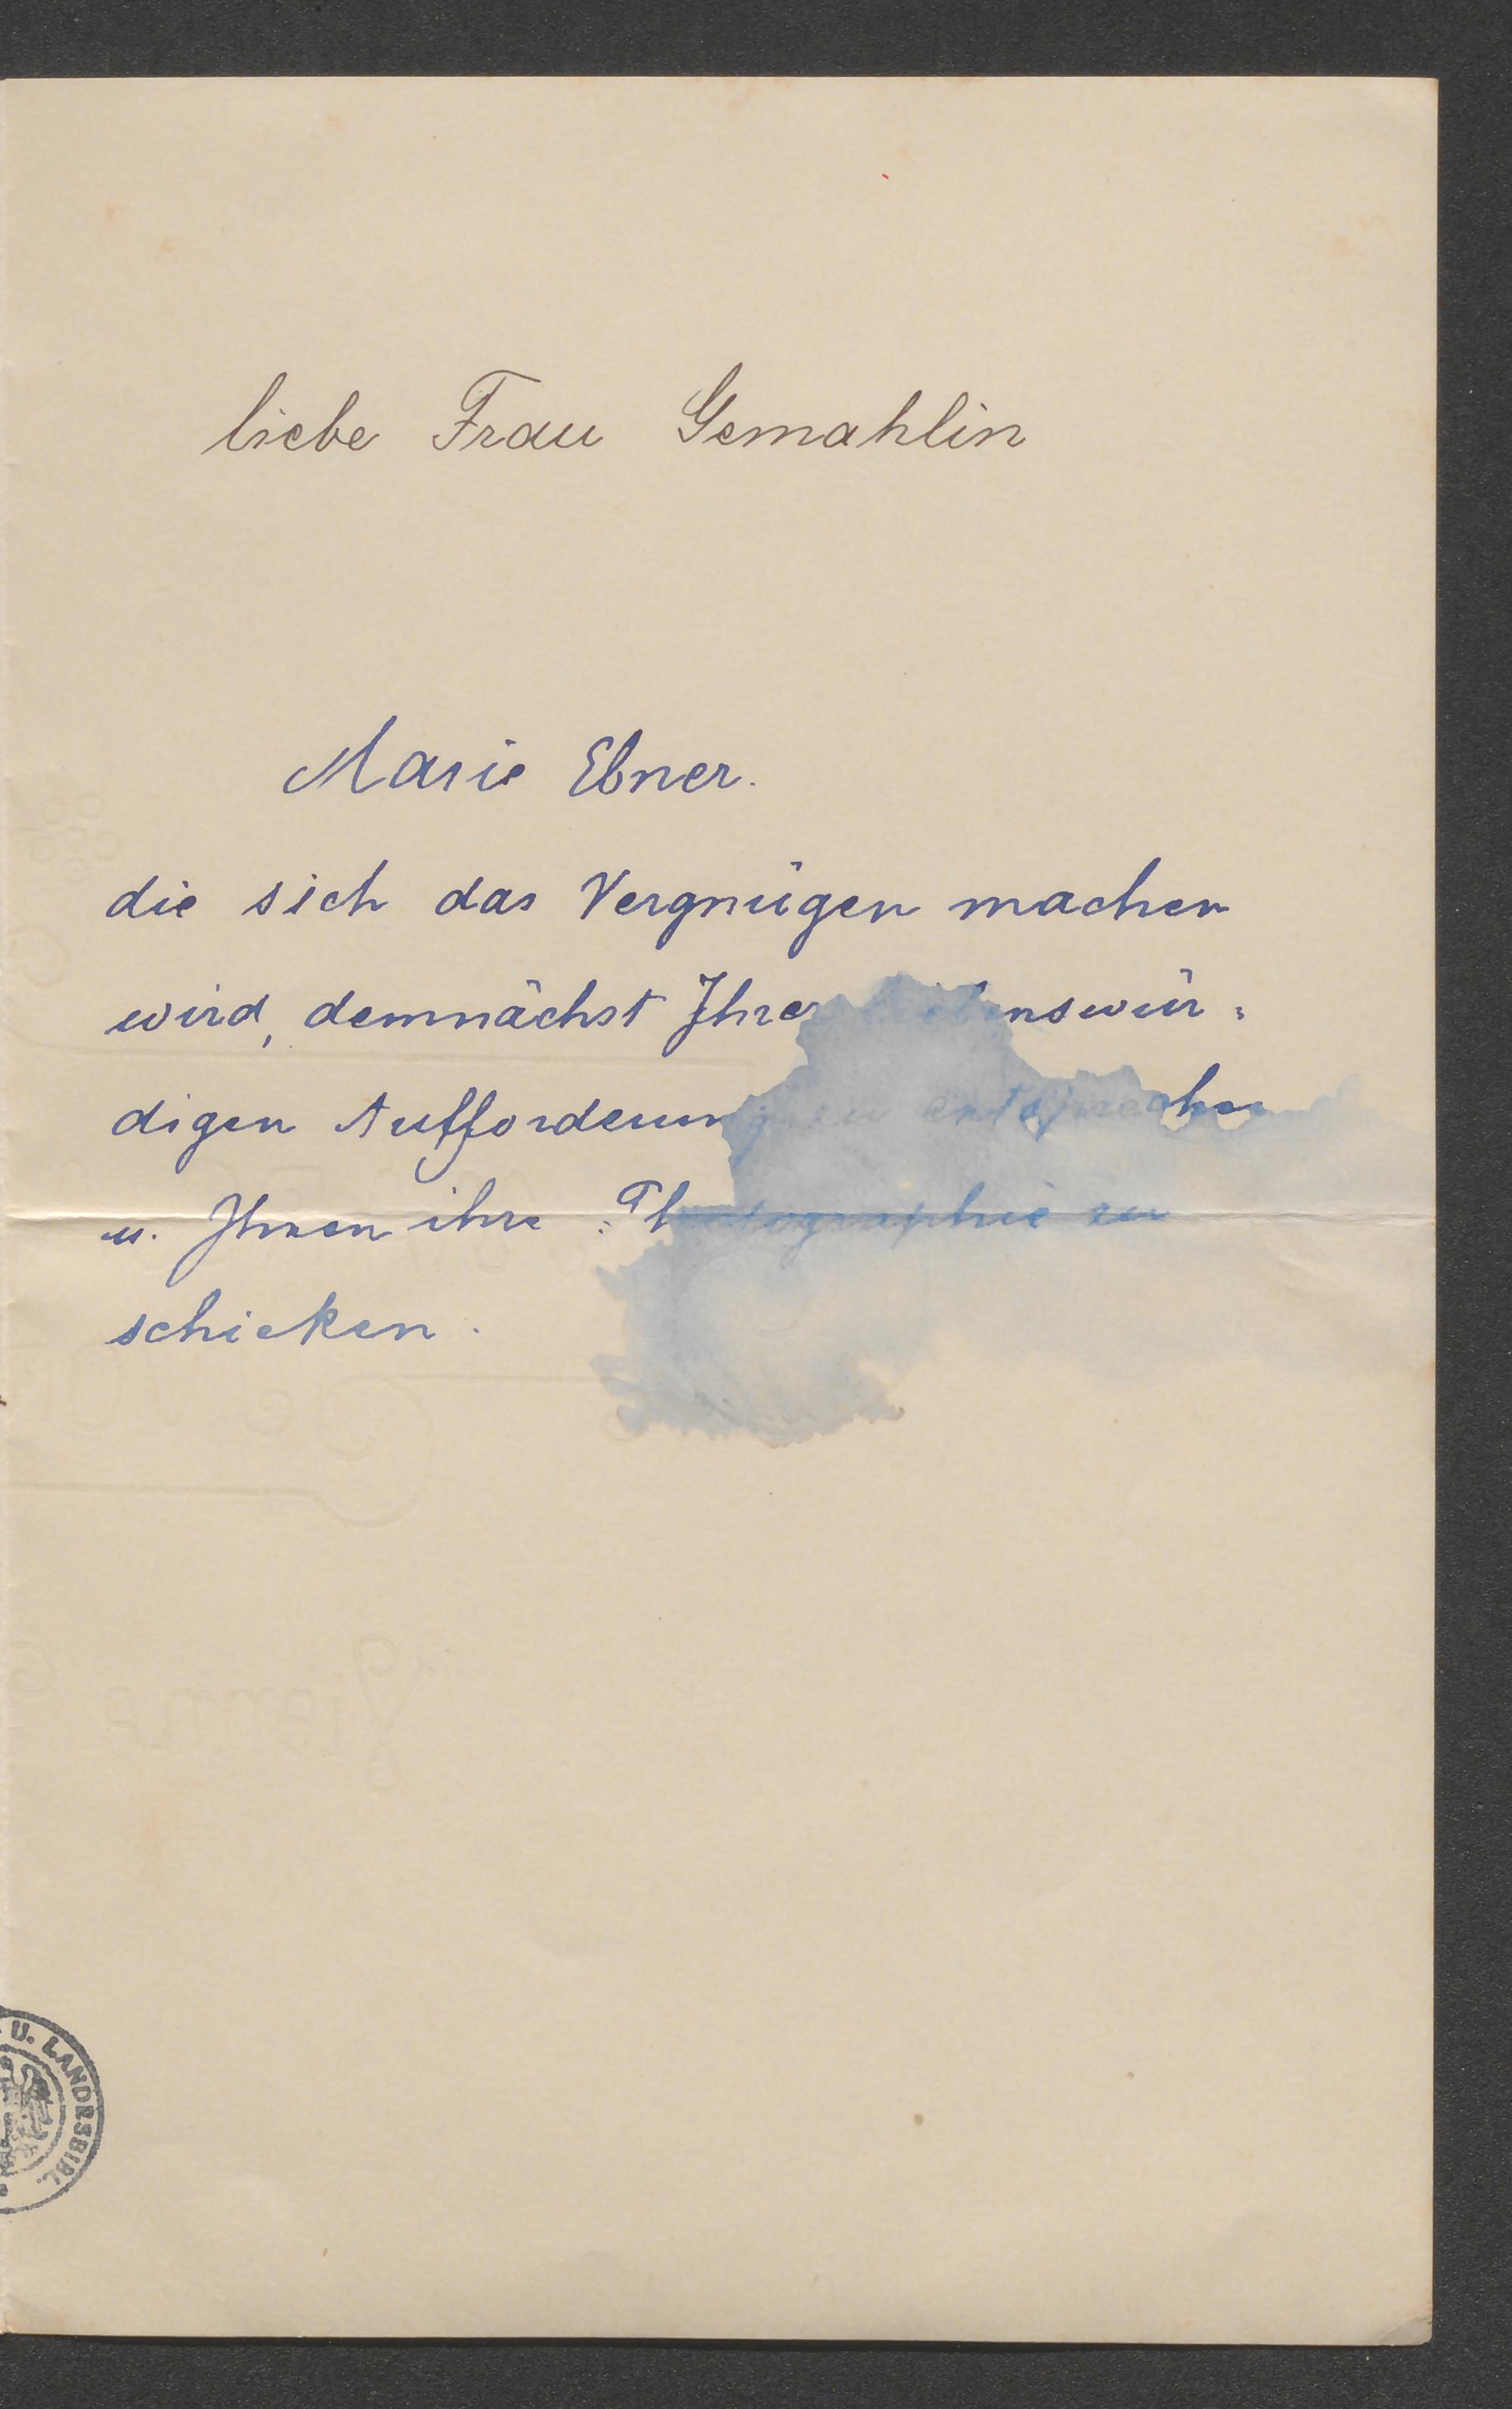 liebe Frau Gemahlin
Marie Ebner.
die sich das Vergnügen machen
wird, demnächst Ihrer liebenswür=
digen Aufforderung zu entsprechen
u. Ihnen ihre Photographie zu
schicken.
U. LANDESBIBL.